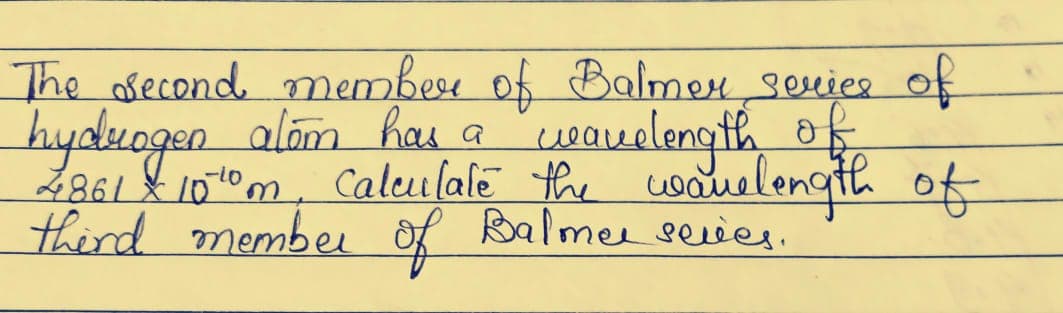 The second member of Balmer series of
hydrogen atom has a wavelength of
4861 x 10⁻¹⁰ m, Calculate the wavelength of
third member of Balmer series.